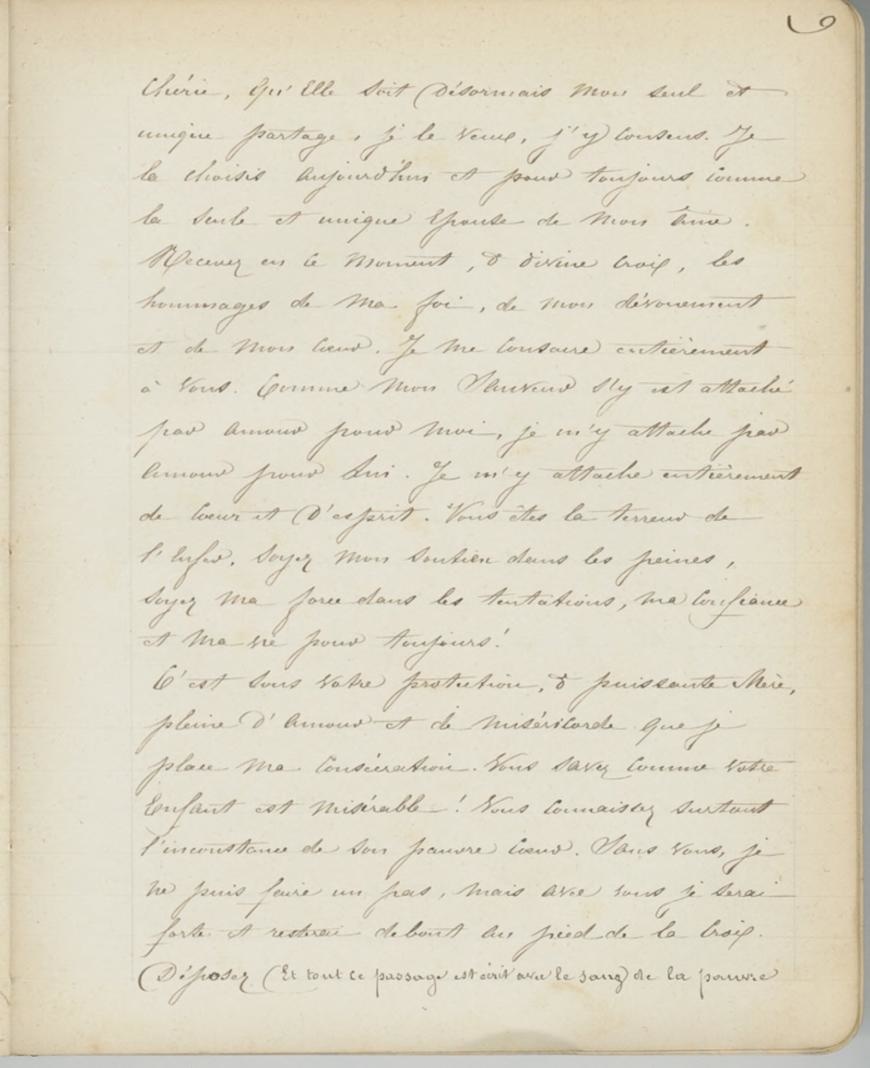 9
Chérie, qu'Elle soit Désormais mon seul et
unique partage, je le veux, j'y consens. Je
la choisis aujourd'hui et pour toujours comme
la seule et unique Epouse de mon âme.
Recevez en ce moment, ô divine Croix, les
hommages de ma foi, de mon dévouement
et de mon Cœur. Je me consacre entièrement
à vous. Comme mon Sauveur s'y est attaché
par amour pour moi, je m'y attache par
amour pour Lui. Je m'y attache entièrement
de Cœur et D'esprit. Vous êtes la terreur de
l'Enfer, soyez mon soutien dans les peines,
soyez ma force dans les tentations, ma confiance
et ma vie pour toujours!
C'est sous votre protection, ô puissante Mère,
pleine D'amour et de miséricorde que je
place ma Consécration. Vous savez comme votre
Enfant est misérable! Vous connaissez surtout
l'inconstance de son pauvre Cœur. Sans vous, je
ne puis faire un pas, mais avec vous je serai
forte et resterai debout au pied de la Croix.
Déposez (Et tout ce passage est écrit avec le sang) de la pauvre